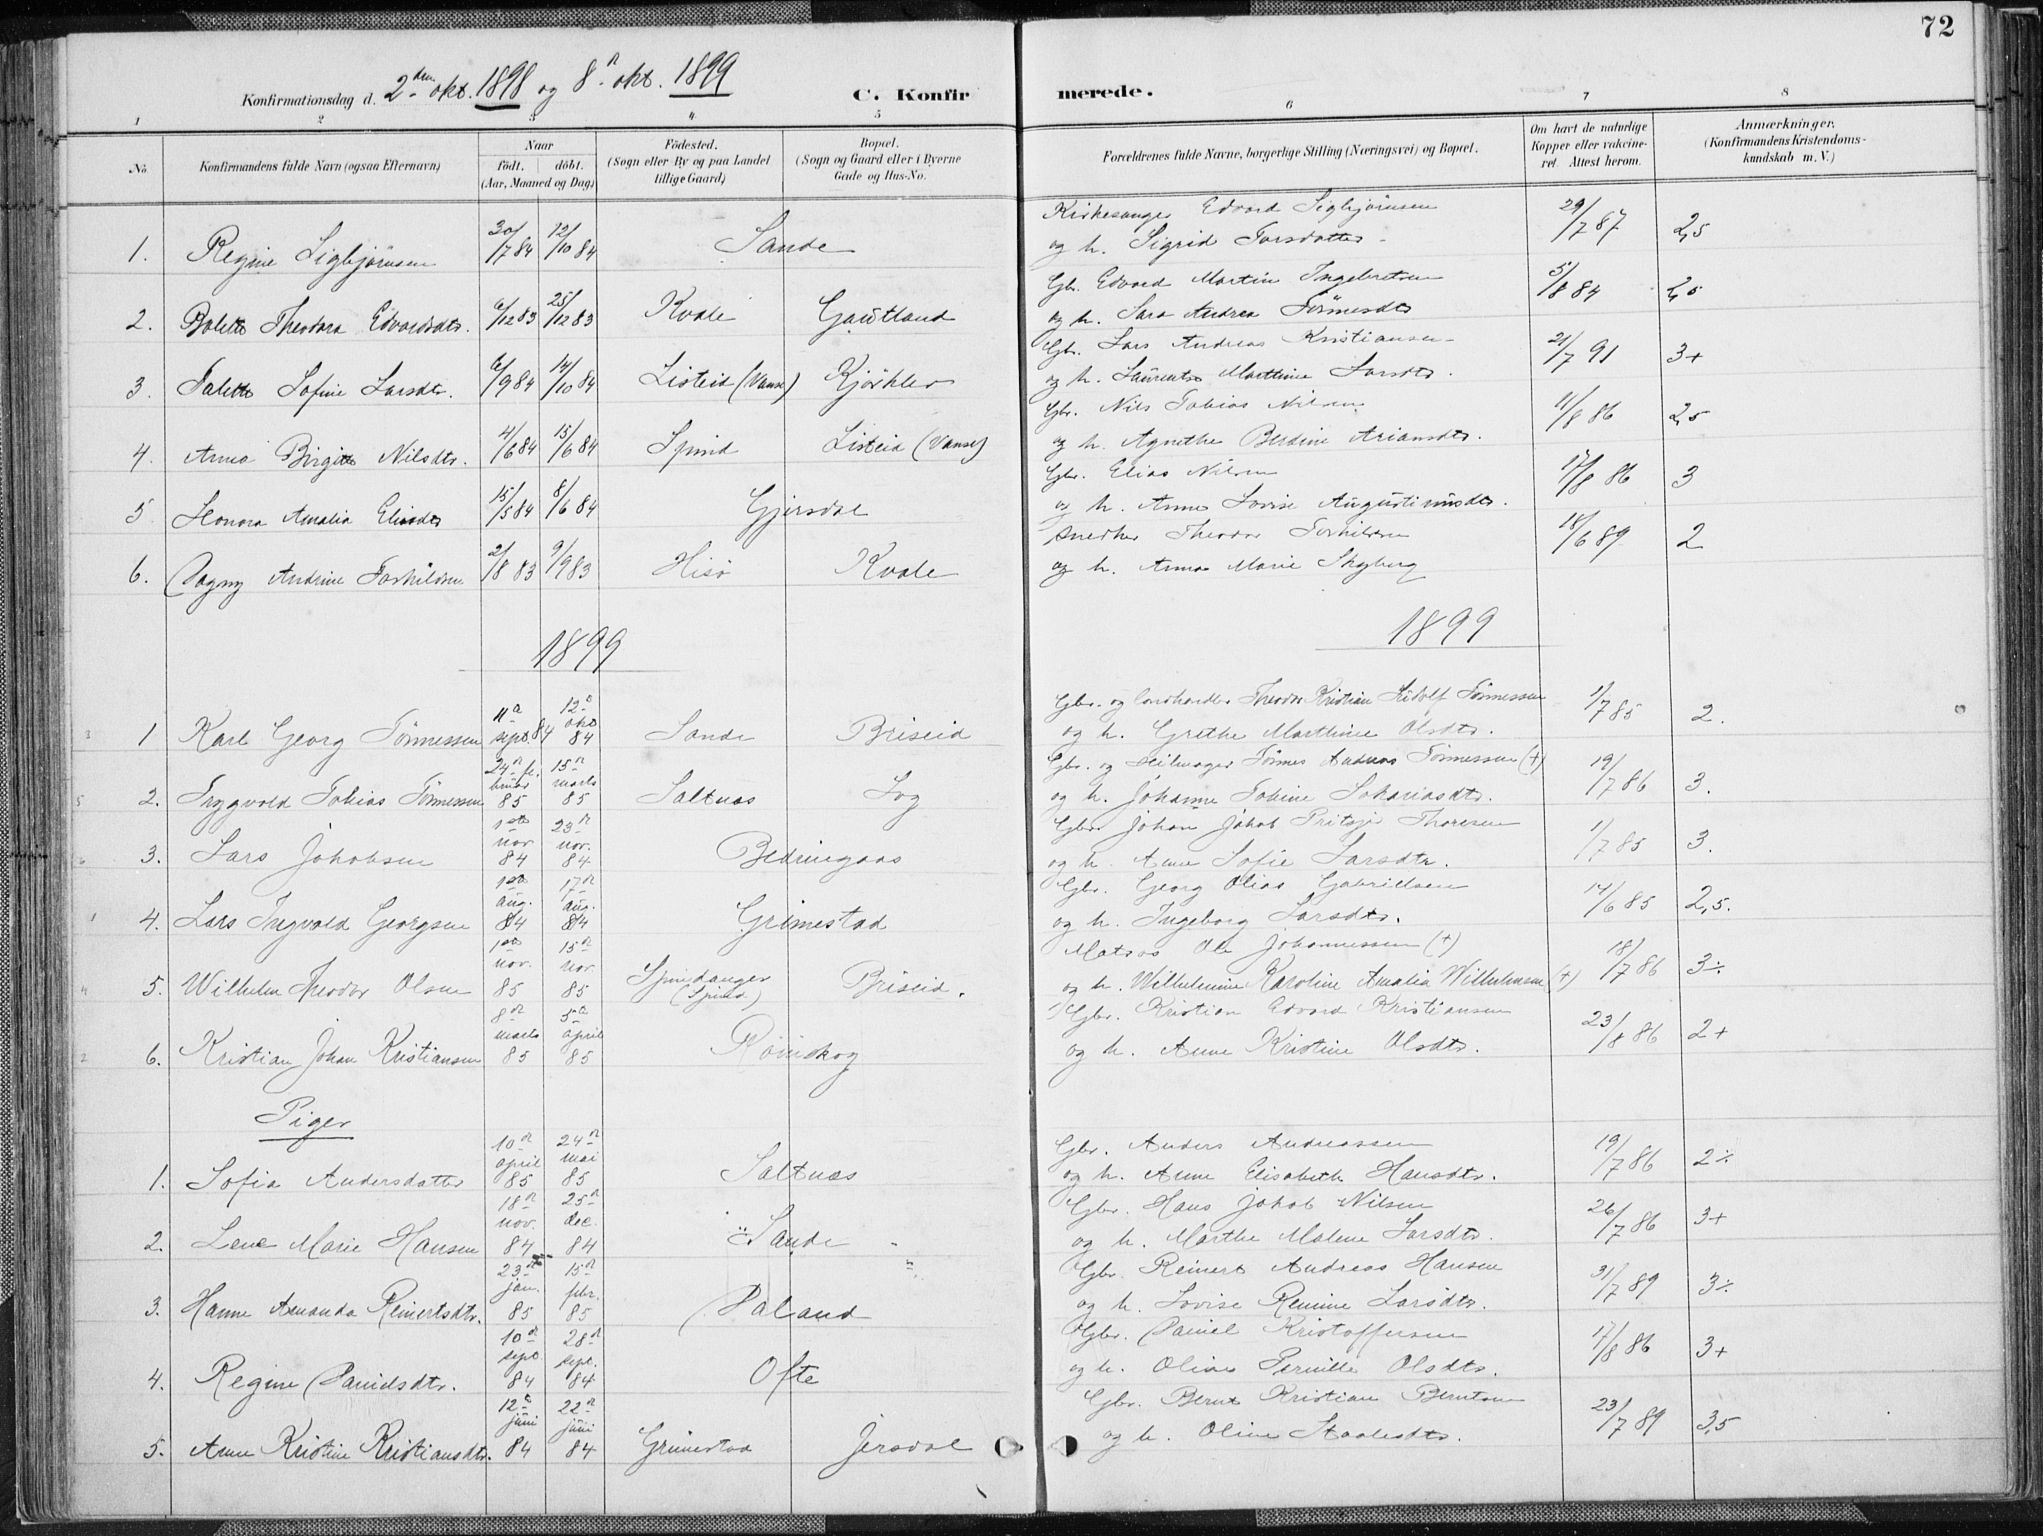 72
Konfirmationsdag d. 2den okt. 1898 og 8. okt. 1899
C. Konfirmerede.
1 2 3 4 5 6 7 8
No. Konfirmandens fulde Navn (ogsaa Efternavn) Naar födt. döbt. (Aar, Maaned og Dag) Födested. (Sogn eller By og paa Landet tillige Gaard) Bopæl. (Sogn og Gaard eller i Byerne Gade og Hus-No. Forældrenes fulde Navne, borgerlige Stilling (Næringsvei) og Bopæl. Om havt de naturlige Kopper eller vakcineret. Attest herom. Anmærkninger. (Konfirmandens Kristendomskundskab m. V.)
1. Regine Sigbjörnsen 30/7 84 12/10 84 Sande Kirkesanger Edvard Sigbjörnsen og h. Sigrid Torsdatter 29/7 87 2,5
2. Bolette Theodora Edvardsdtr. 6/12 83 25/12 83 Kvale Gautland Gbr. Edvard Martin Ingebretsen og h. Sara Andrea Tönnesdtr 5/8 84 2,5
3. Talette Sofine Larsdtr. 6/9 84 14/10 84 Listeid (Vanse) Kjörklev Gbr. Lars Andreas Kristiansen og h. Laurentse Marthine Larsdtr. 21/7 91 3+
4. Anna Birgitte Nilsdtr. 4/6 84 15/6 84 Spind Listeid (Vanse) Gbr. Nils Tobias Nilsen og h. Agnethe Berdine Ariansdtr. 11/8 86 2,5
5 Honora Amalia Eliasdtr 15/5 84 8/6 84 Gjersdal Gbr. Elias Nilsen og h. Anne Lovise Augustinusdtr. 17/8 86 3
6. Dagny Andrine Torkildsen 2/8 83 9/9 83 Hisö Kvale Snedker Theodor Torkildsen og h. Anna Marie Skyberg 18/6 89 2
1899 1899
3 1 Karl Georg Tönnessen 11te sept. 84 12te okt 84 Sande Briseid Gbr. og landhandler Theodor Kristian Rudolf Tönnessen og h. Grethe Marthine Olsdtr. 1/7 85 2.
5 2. Tryggvold Tobias Tönnessen 24de februar 85 15de marts 85 Saltnæs Log Gbr. og seilmager Tönnes Andreas Tönnessen (+) og h. Johanne Tobine Sakariasdtr. 19/7 86 3.
6 3. Lars Jakobsen 1ste nov 84 23de nov. 84 Bedringaas Gbr. Johan Jakob Pritsje Thoresen og h. Anne Sofie Larsdtr. 1/7 85 3.
1 4. Lars Ingvald Georgsen 1ste aug. 84 17de aug. 84 Grimestad Gbr. Georg Olias Gabrielsen og h. Ingeborg Larsdtr. 14/6 85 2,5.
4 5. Wilhelm Theodor Olsen 1ste nov. 85 15de nov. 85 Spindanger (Spind) Briseid. Matros Ole Johannessen (+) og h. Wilhelmine Karoline Amalia Wilhelmsen (+) 18/7 86 3÷
2 6. Kristian Johan Kristiansen 8de marts 85 5te april 85 Röinskog Gbr. Kristian Edvard Kristiansen og h. Anne Kristine Olsdtr. 23/8 86 2+
Piger
1. Sofia Andersdatter 10de april 85 24de mai 85 Saltnæs Gbr. Anders Andreassen og h. Anne Elisabeth Hansdtr. 19/7 86 2÷
2. Lene Marie Hansen 18de nov. 84 25de dec. 84 Sande Gbr. Hans Jakob Nilsen og h. Marthe Malene Larsdtr. 26/7 86 3+
3. Hanne Amanda Reinertsdtr. 23de jan. 85 15de febr. 85 Paland Gbr. Reinert Andreas Hansen og h. Lovise Remine Larsdtr. 31/7 89 3÷
4. Regine Danielsdtr. 10de sept. 84 28de sept. 84 Ofte Gbr. Daniel Kristoffersen og h. Oline Pernille Olsdtr. 17/8 86 3+
5. Anne Kristine Kristiansdtr. 12te juni 84 22de juni 84 Grimestad Jersdal Gbr. Bernt Kristian Berntsen og h. Oline Staalesdtr. 23/7 89 3,5